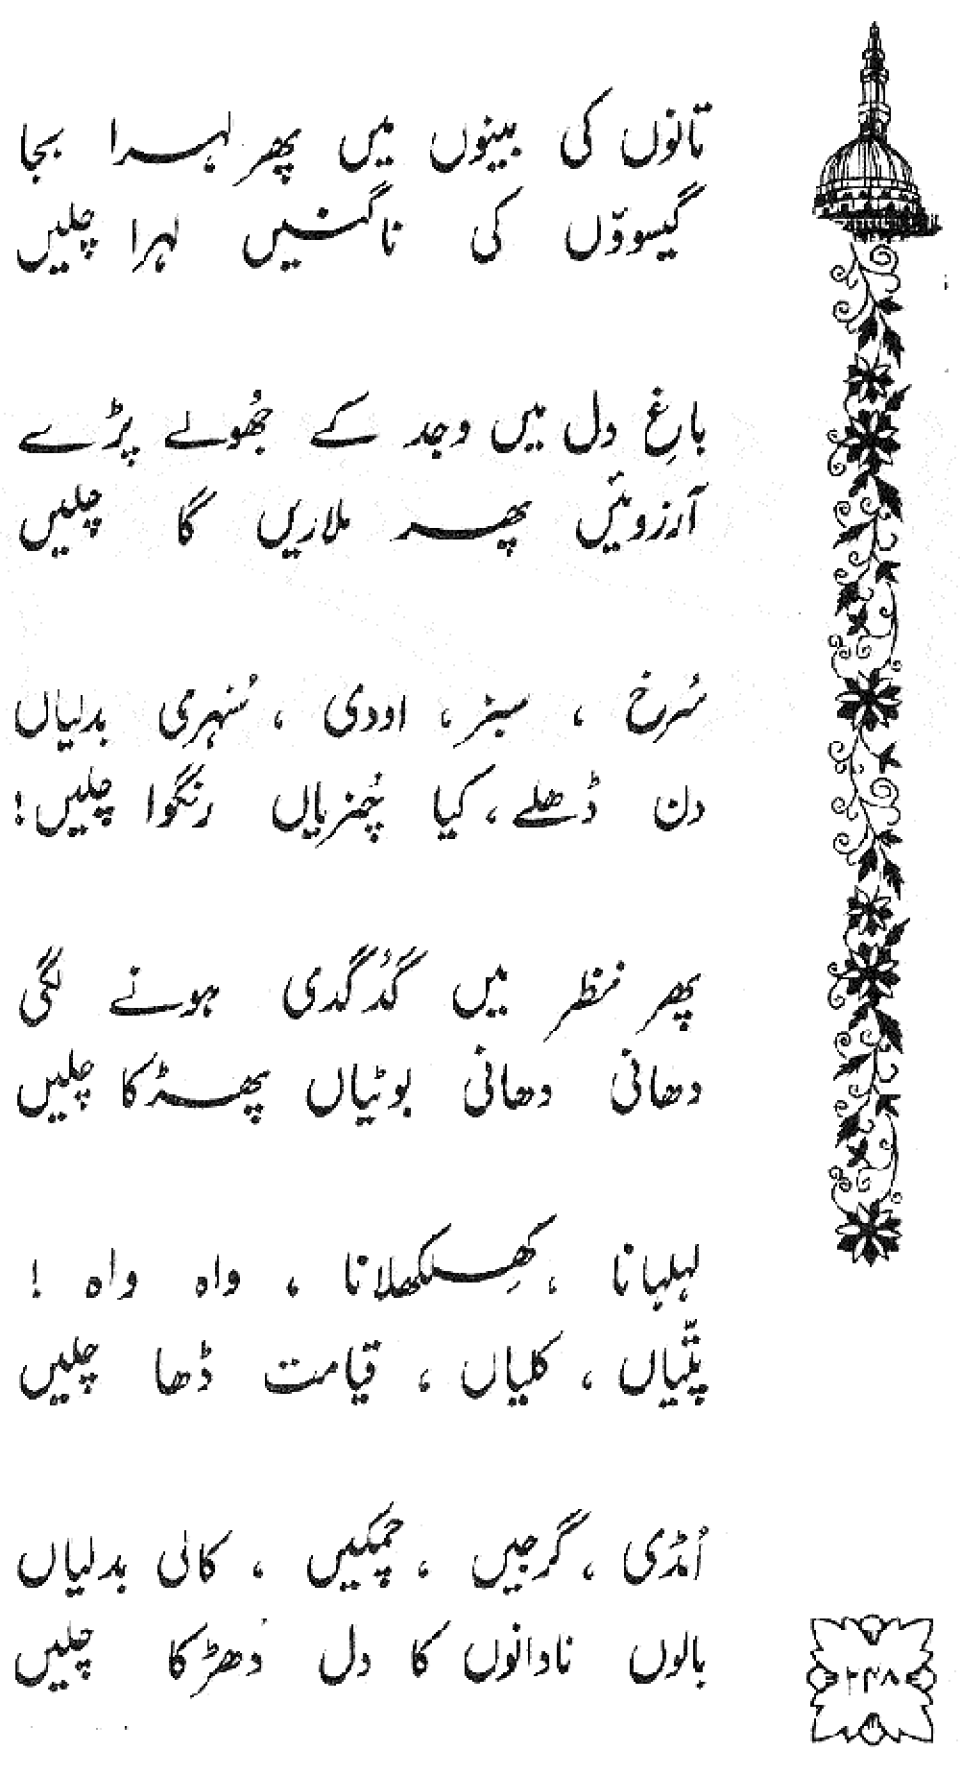 تانوں کی بینوں میں پھر لہرا بجا
گیسوؤں کی ناگنیں لہرا چلیں
باغِ دل میں وجد کے جھُولے پڑے
آرزوئیں پھر ملاریں گا چلیں
سُرخ ، سبز ، اودی ، سُنہری بدلیاں
دن ڈھلے ، کیا چُنریاں رنگوا چلیں !
پھر نظر میں گُدگدی ہونے لگی
دھانی دھانی بوٹیاں پھڑکا چلیں
لہلہانا ، کھِلکھلانا ، واہ واہ !
پتّیاں ، کلیاں ، قیامت ڈھا چلیں
اُمڈی ، گرجیں ، چمکیں ، کالی بدلیاں
بالوں نادانوں کا دل دھڑکا چلیں
۲۴۸